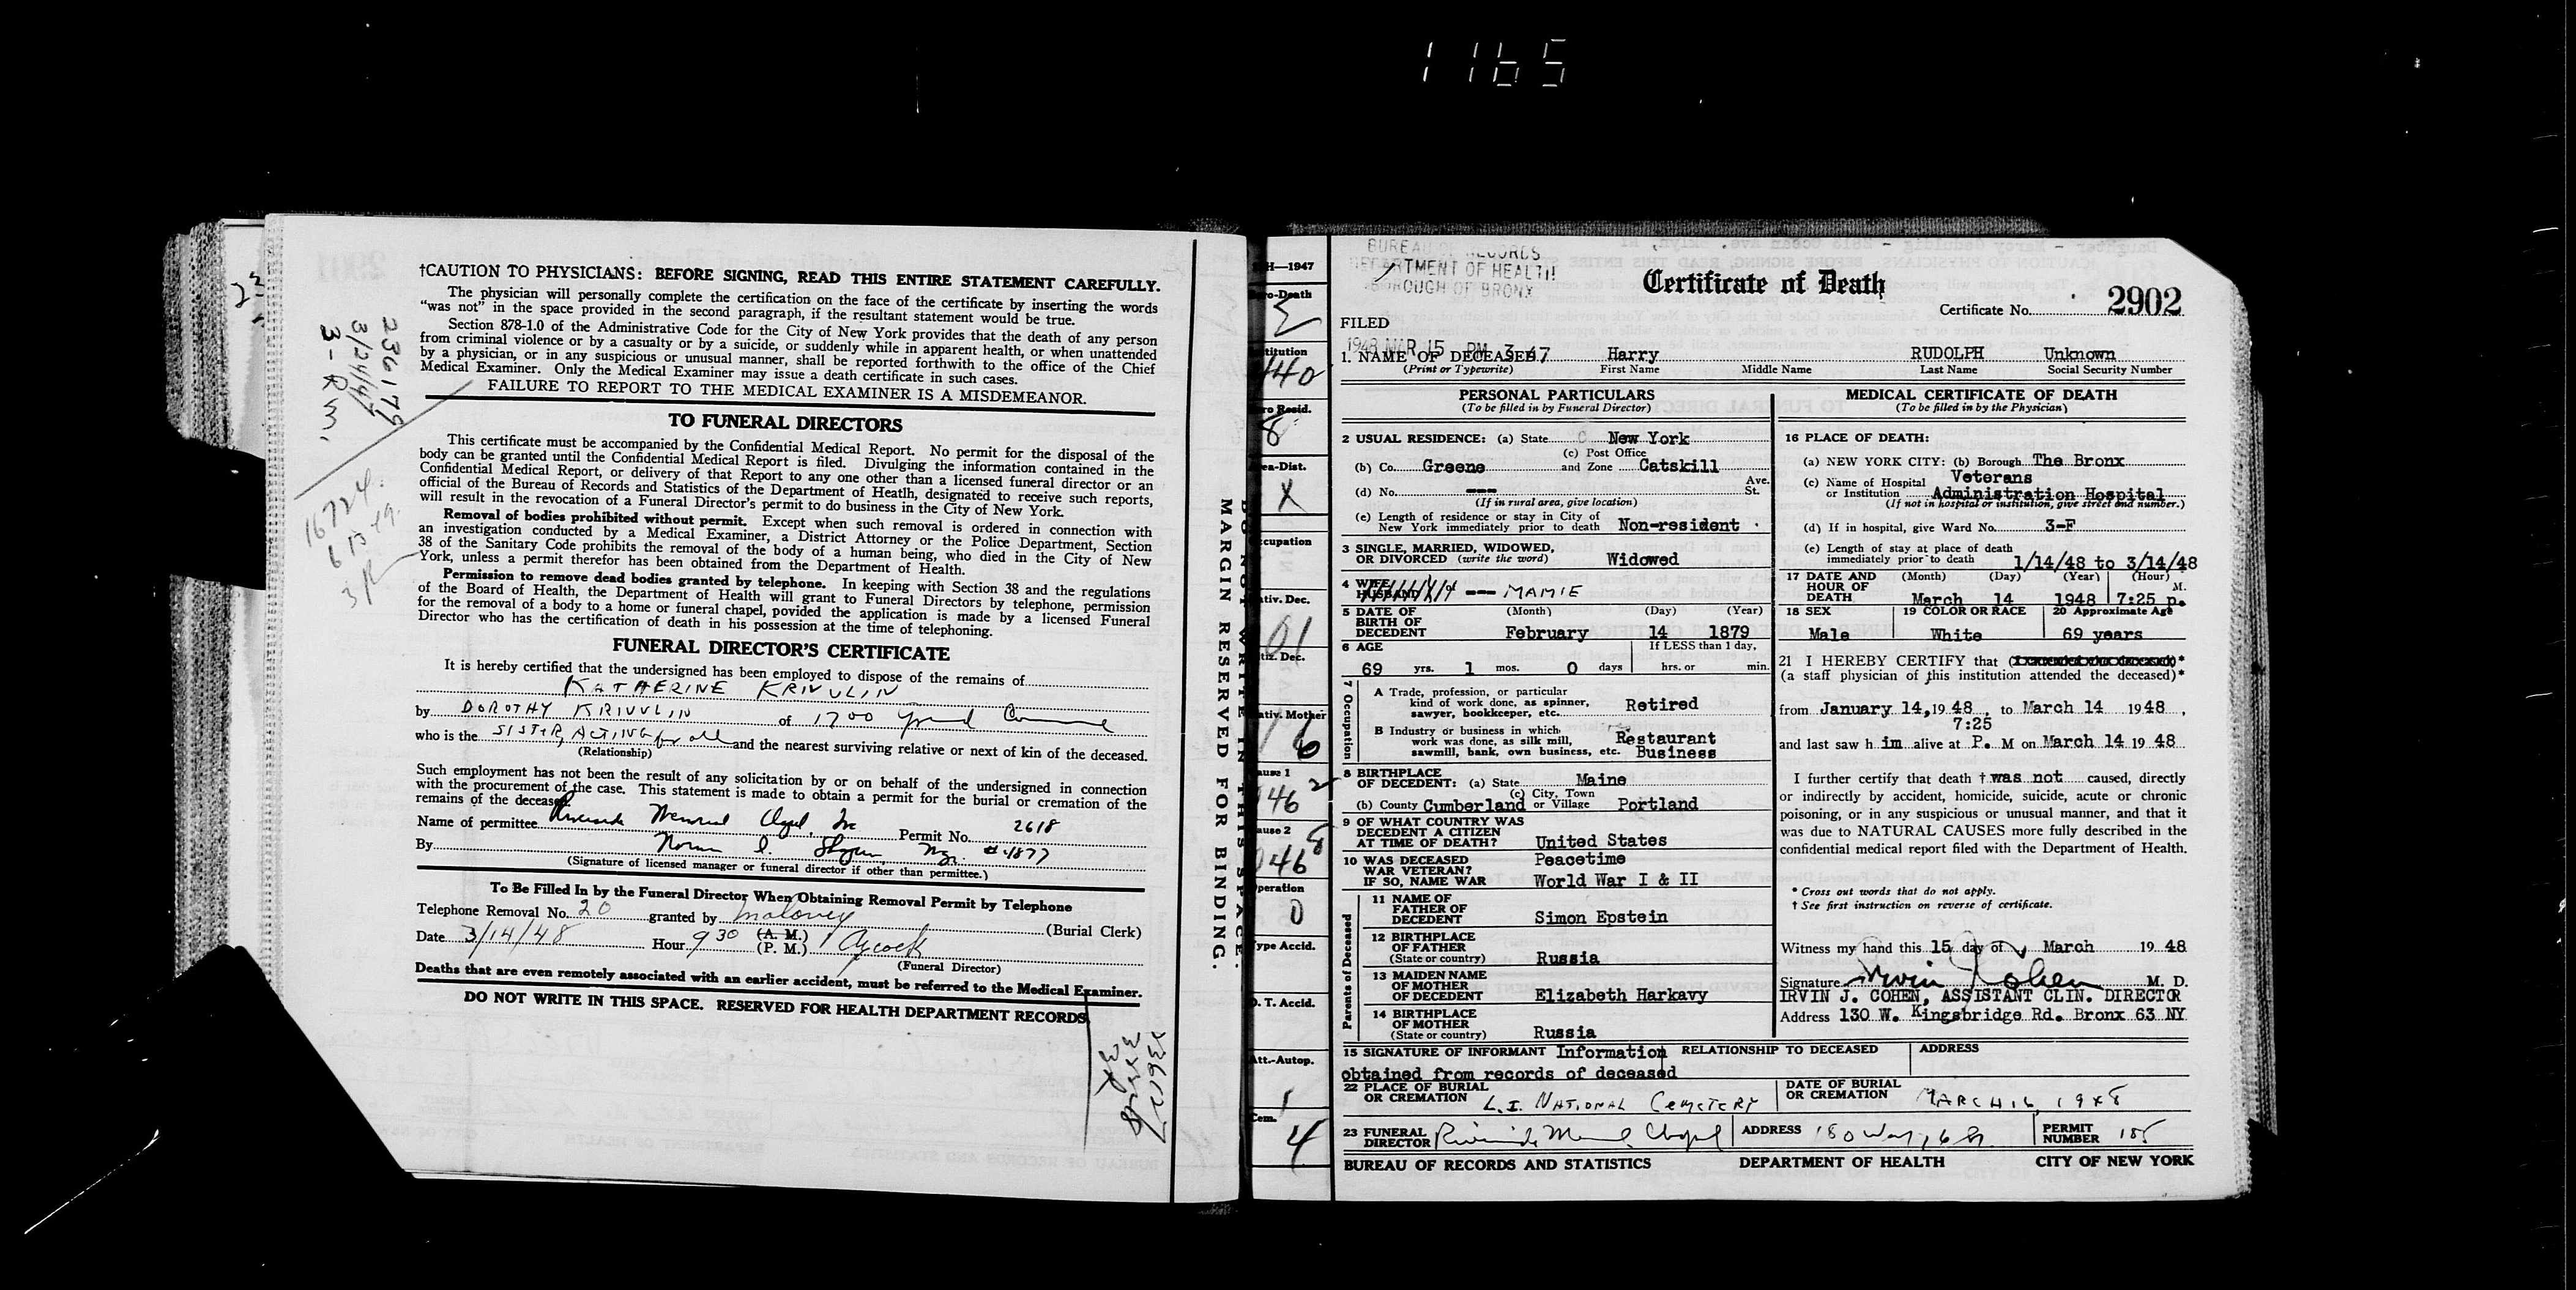 1165
†CAUTION TO PHYSICIANS: BEFORE SIGNING, READ THIS ENTIRE STATEMENT CAREFULLY.
The physician will personally complete the certification on the face of the certificate by inserting the words
“was not” in the space provided in the second paragraph, if the resultant statement would be true.
Section 878-1.0 of the Administrative Code for the City of New York provides that the death of any person
from criminal violence or by a casualty or by a suicide, or suddenly while in apparent health, or when unattended
by a physician, or in any suspicious or unusual manner, shall be reported forthwith to the office of the Chief
Medical Examiner. Only the Medical Examiner may issue a death certificate in such cases.
FAILURE TO REPORT TO THE MEDICAL EXAMINER IS A MISDEMEANOR.
236179
3/24/49
3-RM.
16724.
TO FUNERAL DIRECTORS
This certificate must be accompanied by the Confidential Medical Report. No permit for the disposal of the
body can be granted until the Confidential Medical Report is filed. Divulging the information contained in the
Confidential Medical Report, or delivery of that Report to any one other than a licensed funeral director or an
official of the Bureau of Records and Statistics of the Department of Heatlh, designated to receive such reports,
will result in the revocation of a Funeral Director's permit to do business in the City of New York.
Removal of bodies prohibited without permit. Except when such removal is ordered in connection with
an investigation conducted by a Medical Examiner, a District Attorney or the Police Department, Section
38 of the Sanitary Code prohibits the removal of the body of a human being, who died in the City of New
York, unless a permit therefor has been obtained from the Department of Health.
Permission to remove dead bodies granted by telephone. In keeping with Section 38 and the regulations
of the Board of Health, the Department of Health will grant to Funeral Directors by telephone, permission
for the removal of a body to a home or funeral chapel, povided the application is made by a licensed Funeral
Director who has the certification of death in his possession at the time of telephoning.
FUNERAL DIRECTOR'S CERTIFICATE
It is hereby certified that the undersigned has been employed to dispose of the remains of
KATHERINE KRIVULIN
by DOROTHY KRIVULIN of 1700 Grand Concourse
who is the SISTER, ACTING for all and the nearest surviving relative or next of kin of the deceased.
(Relationship)
Such employment has not been the result of any solicitation by or on behalf of the undersigned in connection
with the procurement of the case. This statement is made to obtain a permit for the burial or cremation of the
remains of the deceased.
Name of permittee Riverside Memorial Chapel, Inc Permit No. 2618
By Norman Mgr. #4877
(Signature of licensed manager or funeral director if other than permittee.)
To Be Filled In by the Funeral Director When Obtaining Removal Permit by Telephone
Telephone Removal No. 20 granted by Maloney (Burial Clerk)
Date 3/14/48 Hour 9 30 (A. M.) (P. M.) Aycock
(Funeral Director)
Deaths that are even remotely associated with an earlier accident, must be referred to the Medical Examiner.
DO NOT WRITE IN THIS SPACE. RESERVED FOR HEALTH DEPARTMENT RECORDS
MARGIN RESERVED FOR BINDING.
DO NOT WRITE IN THIS SPACE.
H—1947
ro-Death
titution
440
ro Resid.
8
ea-Dist.
X
cupation
tiv. Dec.
01
tiz. Dec.
ativ. Mother
16
ause 1
046 2
ause 2
046 8
peration
0
ype Accid.
D. T. Accid.
Att.-Autop.
1
Cem.
4
BUREAU OF RECORDS
DEPARTMENT OF HEALTH
BOROUGH OF BRONX
Certificate of Death
Certificate No. 2902
FILED
1948 MAR 15 PM 3 47
1. NAME OF DECEASED Harry RUDOLPH Unknown
(Print or Typewrite) First Name Middle Name Last Name Social Security Number
PERSONAL PARTICULARS
(To be filled in by Funeral Director)
2 USUAL RESIDENCE: (a) State New York
(b) Co. Greene (c) Post Office and Zone Catskill
(d) No. --- Ave. St.
(If in rural area, give location)
(e) Length of residence or stay in City of
New York immediately prior to death Non-resident
3 SINGLE, MARRIED, WIDOWED,
OR DIVORCED (write the word) Widowed
4 WIFE
HUSBAND of --- MAMIE
5 DATE OF BIRTH OF DECEDENT (Month) (Day) (Year)
February 14 1879
6 AGE If LESS than 1 day,
69 yrs. 1 mos. 0 days hrs. or min.
7 Occupation
A Trade, profession, or particular
kind of work done, as spinner,
sawyer, bookkeeper, etc. Retired
B Industry or business in which
work was done, as silk mill,
sawmill, bank, own business, etc. Restaurant Business
8 BIRTHPLACE
OF DECEDENT: (a) State Maine
(b) County Cumberland (c) City, Town or Village Portland
9 OF WHAT COUNTRY WAS
DECEDENT A CITIZEN
AT TIME OF DEATH? United States
10 WAS DECEASED
WAR VETERAN?
IF SO, NAME WAR
Peacetime
World War I & II
Parents of Deceased
11 NAME OF
FATHER OF
DECEDENT Simon Epstein
12 BIRTHPLACE
OF FATHER
(State or country) Russia
13 MAIDEN NAME
OF MOTHER
OF DECEDENT Elizabeth Harkavy
14 BIRTHPLACE
OF MOTHER
(State or country) Russia
MEDICAL CERTIFICATE OF DEATH
(To be filled in by the Physician)
16 PLACE OF DEATH:
(a) NEW YORK CITY: (b) Borough The Bronx
(c) Name of Hospital
or Institution Veterans Administration Hospital
(If not in hospital or institution, give street and number.)
(d) If in hospital, give Ward No. 3-F
(e) Length of stay at place of death
immediately prior to death 1/14/48 to 3/14/48
17 DATE AND HOUR OF DEATH (Month) (Day) (Year) (Hour) M.
March 14 1948 7:25 p.
18 SEX 19 COLOR OR RACE 20 Approximate Age
Male White 69 years
21 I HEREBY CERTIFY that (I attended the deceased)*
(a staff physician of this institution attended the deceased)*
from January 14, 1948, to March 14 1948,
7:25
and last saw h im alive at P. M on March 14 1948
I further certify that death † was not caused, directly
or indirectly by accident, homicide, suicide, acute or chronic
poisoning, or in any suspicious or unusual manner, and that it
was due to NATURAL CAUSES more fully described in the
confidential medical report filed with the Department of Health.
* Cross out words that do not apply.
† See first instruction on reverse of certificate.
Witness my hand this 15 day of March 1948
Signature Irvin J Cohen M. D.
IRVIN J. COHEN, ASSISTANT CLIN. DIRECTOR
Address 130 W. Kingsbridge Rd. Bronx 63 NY
15 SIGNATURE OF INFORMANT Information RELATIONSHIP TO DECEASED ADDRESS
obtained from records of deceased
22 PLACE OF BURIAL
OR CREMATION L.I. NATIONAL CEMETERY DATE OF BURIAL
OR CREMATION MARCH 16, 1948
23 FUNERAL
DIRECTOR Riverside Mem'l Chapel ADDRESS 180 W 76 St. PERMIT
NUMBER 185
BUREAU OF RECORDS AND STATISTICS DEPARTMENT OF HEALTH CITY OF NEW YORK